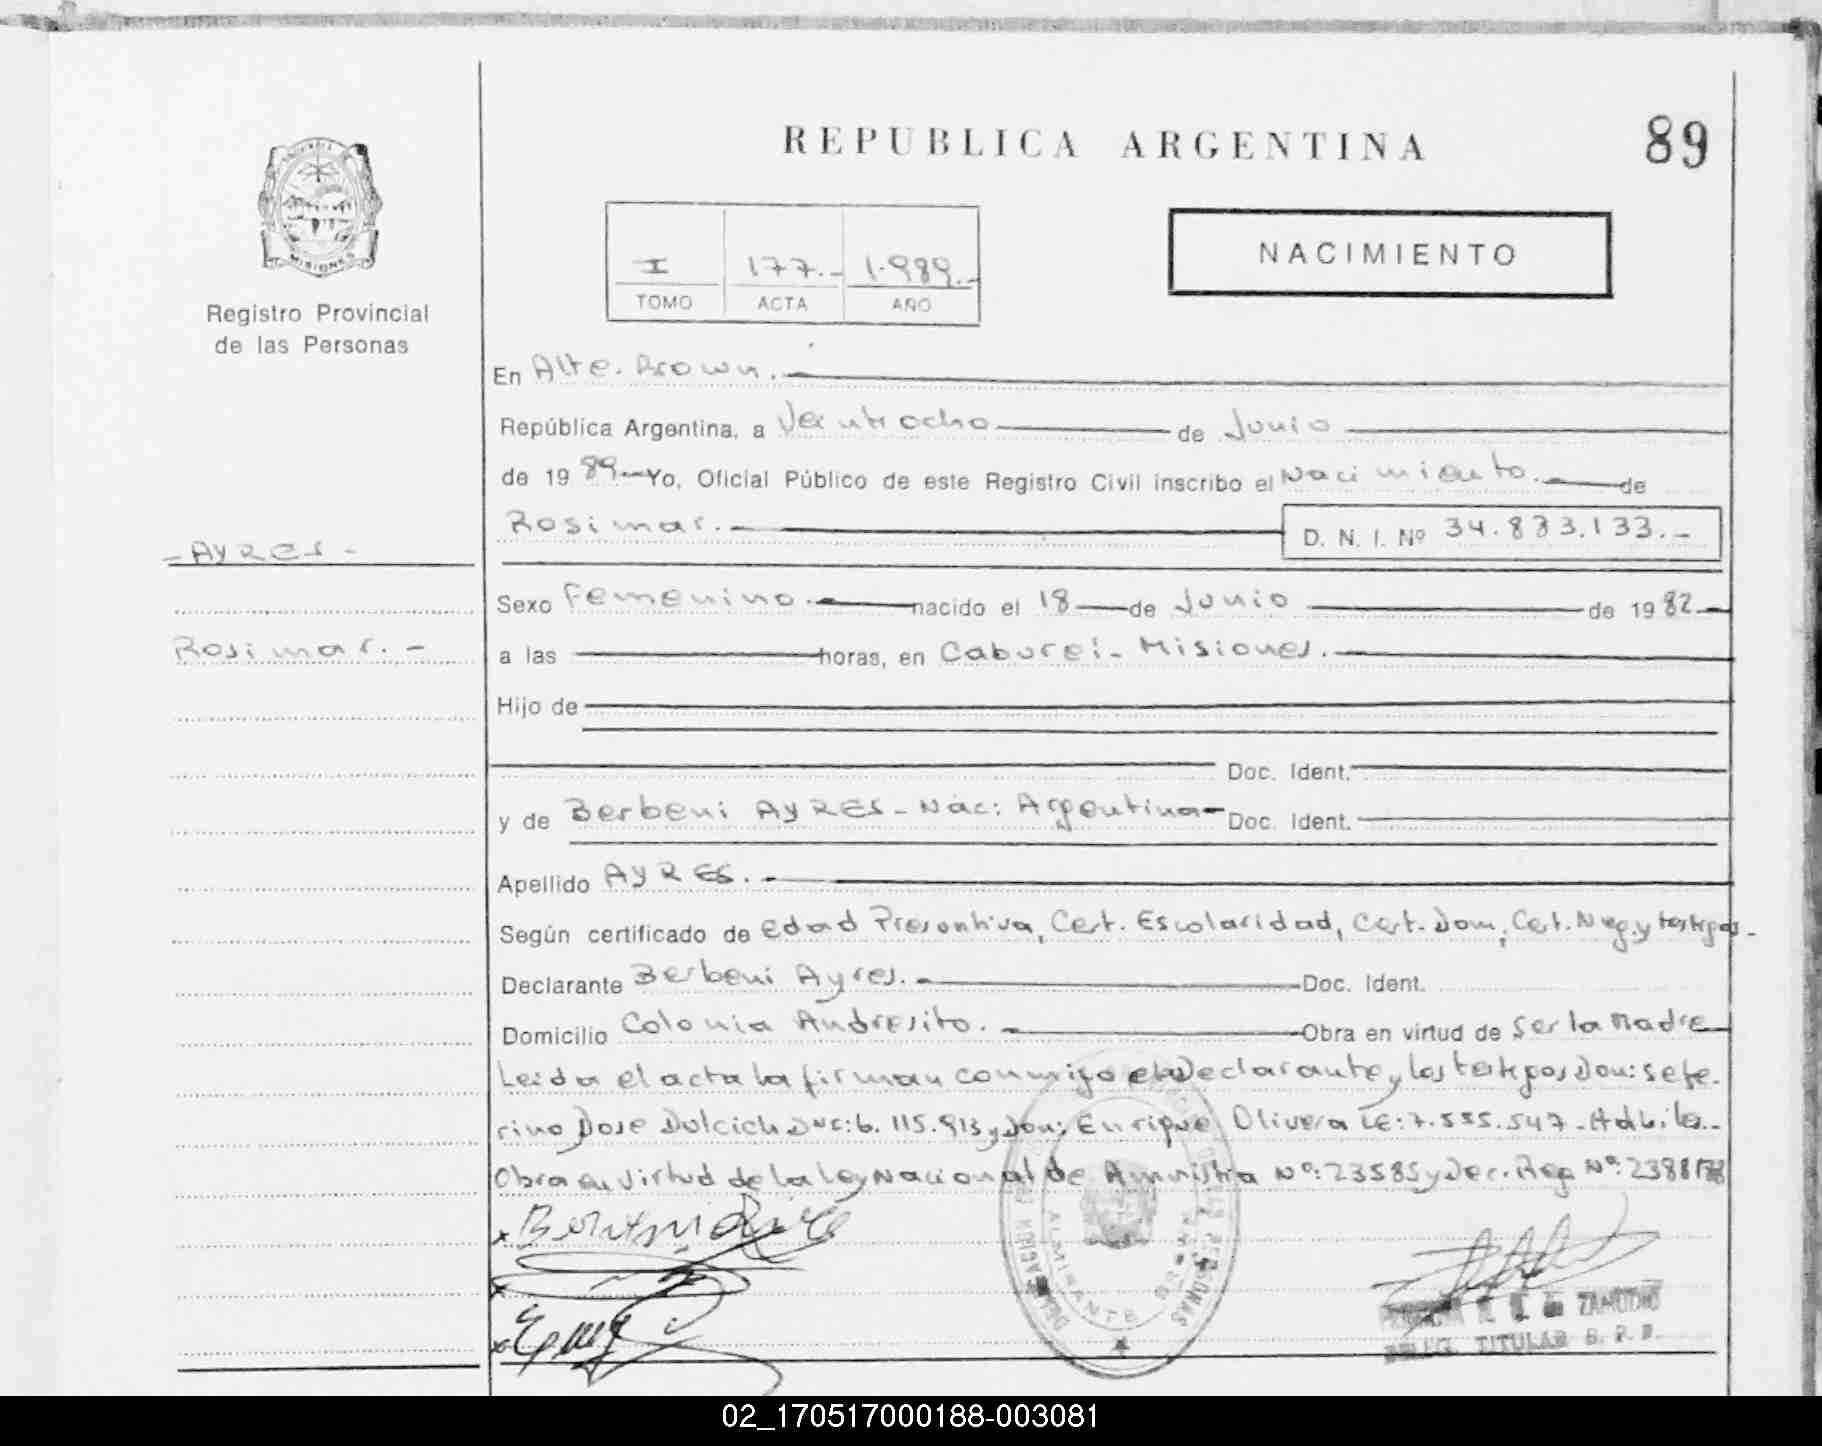 REPUBLICA ARGENTINA
89
PROVINCIA
MISIONES
Registro Provincial
de las Personas
I 177.- 1.989.-
TOMO ACTA AÑO
NACIMIENTO
En Alte. Brown.
República Argentina, a Veintiocho de Junio
de 1989 Yo, Oficial Público de este Registro Civil inscribo el Nacimiento. de
Rosimar.
D. N. I. Nº 34.833.133.-
- AYRES -
Rosimar. -
Sexo Femenino. nacido el 18 de Junio de 1982
a las horas, en Cabureí - Misiones.
Hijo de
Doc. Ident.
y de Berbeni AYRES - Nac: Argentina - Doc. Ident.
Apellido AYRES.
Según certificado de edad Presentiva, Cert. Escolaridad, Cert. Dom, Cet. Neg. y testigos.
Declarante Berbeni Ayres. Doc. Ident.
Domicilio Colonia Andresito. Obra en virtud de Ser la Madre
Leida el acta la firman conmigo el Declarante y los testigos Don: Sefe-
rino Dose Dulcich DNI: 6.115.913 y Don: Enrique Olivera LE: 7.555.547.-
Obra en virtud de la Ley Nacional de Amnistia Nº: 23585 y Dec. Reg Nº: 2388
ALMIRANTE BROWN
PERSONAS
ZAMUDIO
TITULAR
02_170517000188-003081